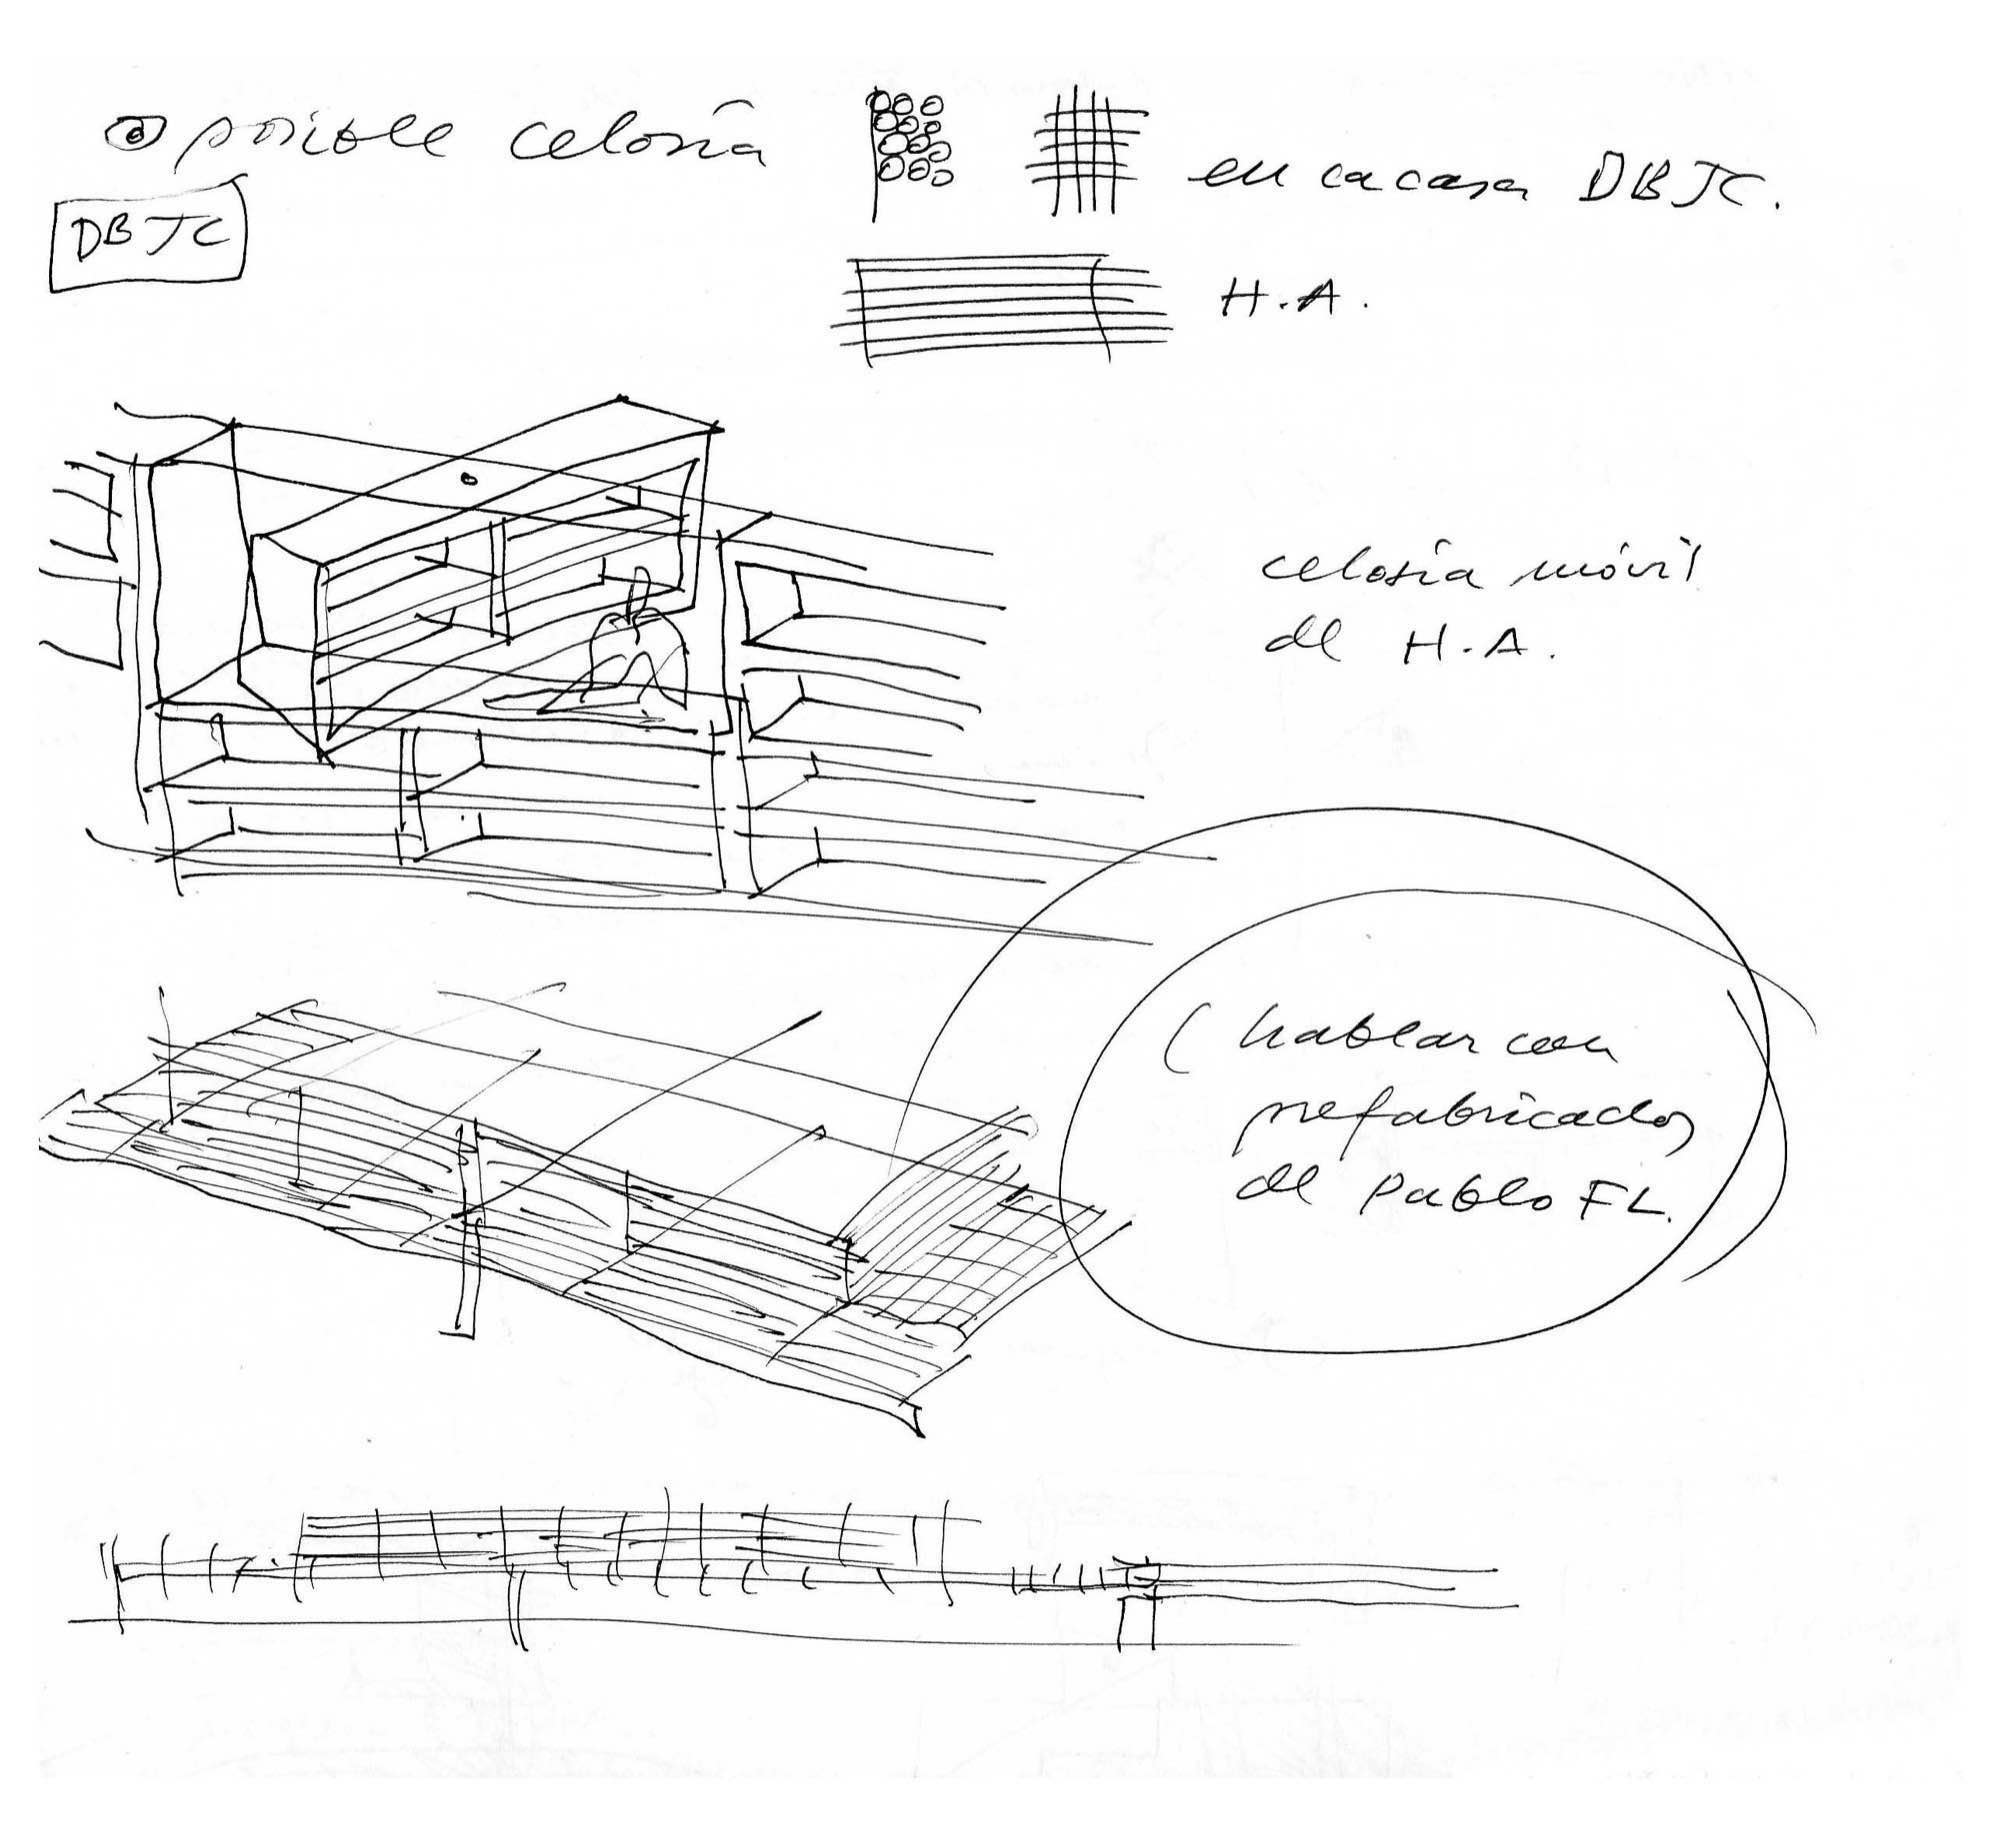 posible celosía
en la casa DBJC.
DBJC
H.A.
celosía móvil
de H.A.
(hablar con
prefabricados
de Pablo FL.